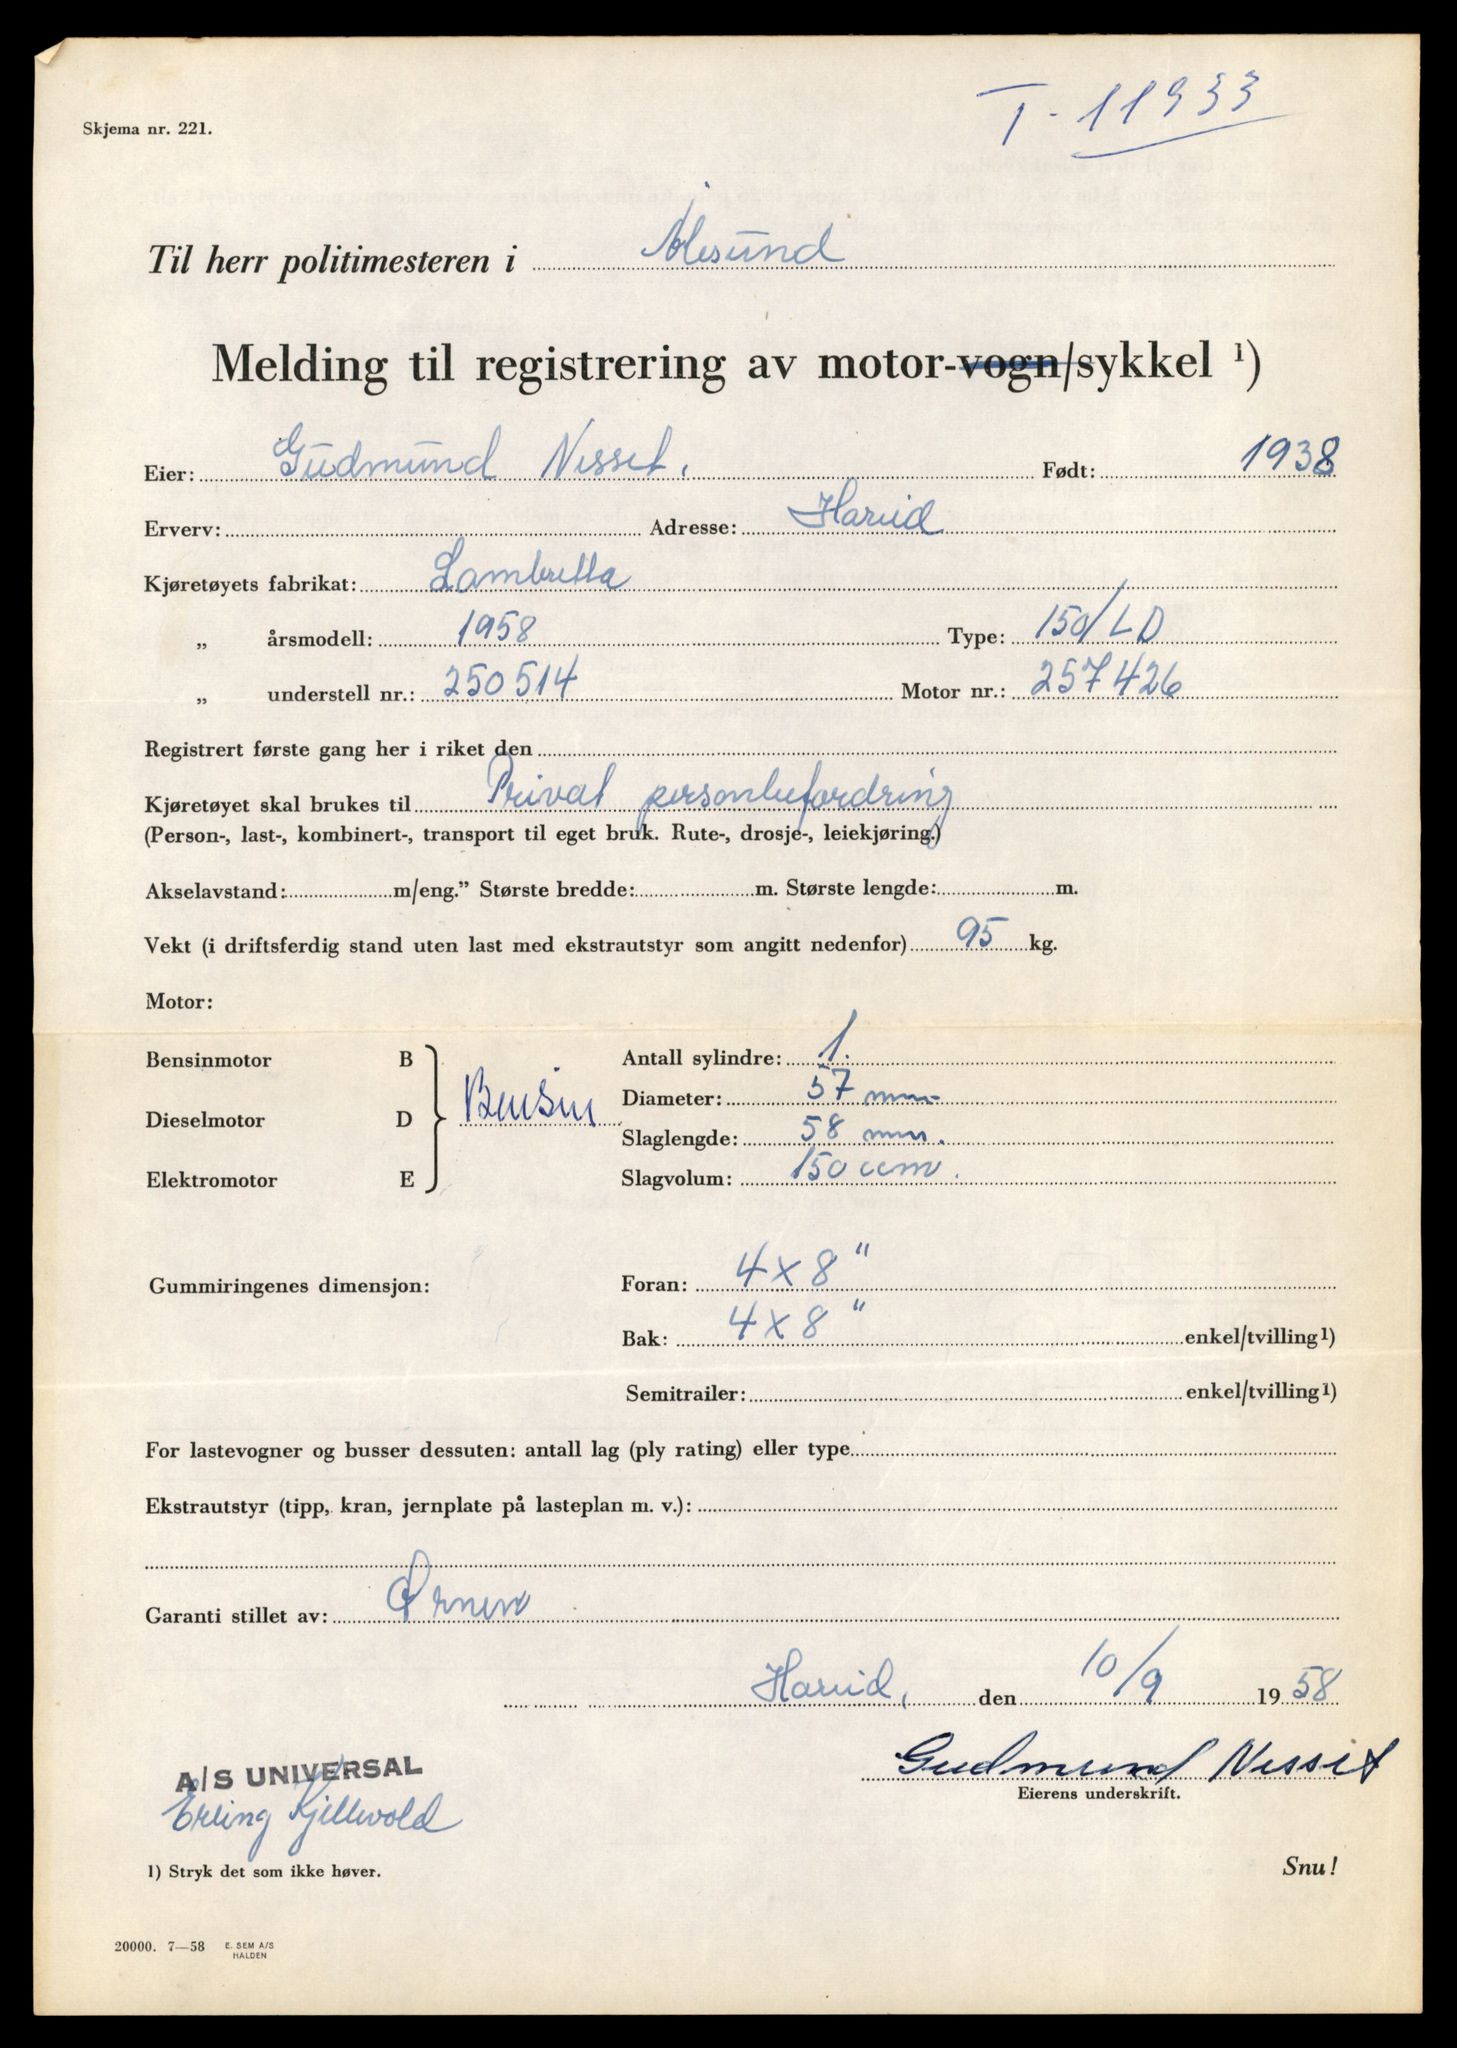 T - 11933
Skjema nr. 221.
Til herr politimesteren i Ålesund
Melding til registrering av motor-vogn/sykkel ¹)
Eier: Gudmund Nesset. Født: 1938
Erverv: Adresse: Hareid
Kjøretøyets fabrikat: Lambretta
„ årsmodell: 1958 Type: 150/LD
„ understell nr.: 250514 Motor nr.: 257426
Registrert første gang her i riket den
Kjøretøyet skal brukes til Privat personbefordring
(Person-, last-, kombinert-, transport til eget bruk. Rute-, drosje-, leiekjøring.)
Akselavstand: m/eng.” Største bredde: m. Største lengde: m.
Vekt (i driftsferdig stand uten last med ekstrautstyr som angitt nedenfor) 95 kg.
Motor:
Bensinmotor B Antall sylindre: 1.
Bensin Diameter: 57 mm
Dieselmotor D Slaglengde: 58 mm.
Elektromotor E Slagvolum: 150 ccm.
Gummiringenes dimensjon: Foran: 4 x 8 "
Bak: 4 x 8 " enkel/tvilling¹)
Semitrailer: enkel/tvilling¹)
For lastevogner og busser dessuten: antall lag (ply rating) eller type
Ekstrautstyr (tipp, kran, jernplate på lasteplan m. v.):
Garanti stillet av: Ørnen
Hareid, den 10/9 1958
A/S UNIVERSAL
Erling Kjellevold
Gudmund Nesset
Eierens underskrift.
1) Stryk det som ikke høver.
Snu!
20000. 7—58 E. SEM A/S
HALDEN